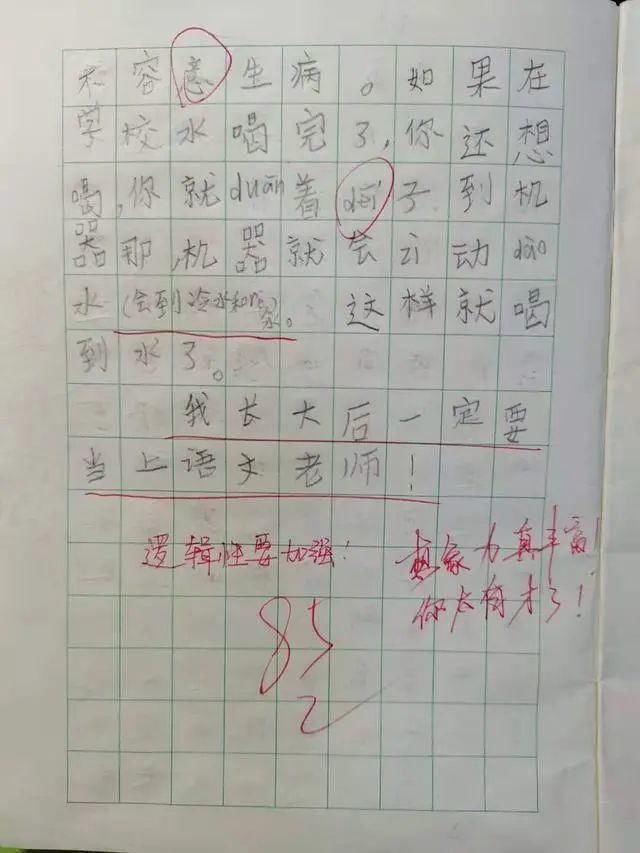 不容意生病。如果在
学校水喝完了,你还想
喝,你就duān着 子到机
器那,机器就会 动dào
水(会到冷水和 水)。这样就喝
到水了。
我长大后一定要
当上语文老师！
逻辑性要加强！
想象力真丰富！
你太有才了！
85